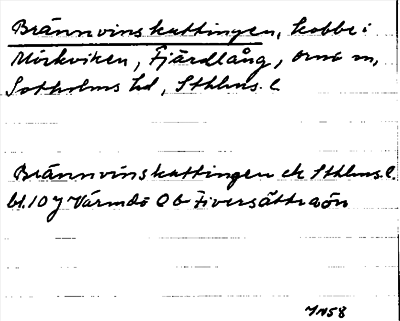 Brännvinskattingen, kobbe i
Mörkviken, Fjärdlång, Ornö sn,
Sotholms hd, Sthlms. l.
Brännvinskattingen ek Sthlms. l.
bl. 107 Värmdö Ob Fiversättraön
YN58